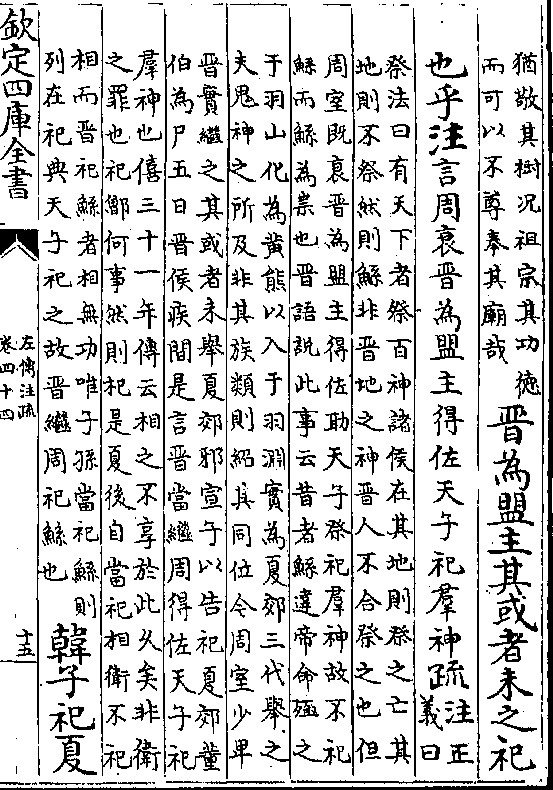 猶敬其樹况祖宗其功徳
而可以不尊奉其廟哉
晉為盟主其或者未之祀
也乎注言周衰晉為盟主得佐天子祀羣神疏
注正
義曰
祭法曰有天下者祭百神諸侯在其地則祭之亡其
地則不祭然則鯀非晉地之神晉人不合祭之也但
周室既衰晉為盟主得佐助天子祭祀羣神故不祀
鯀而鯀為祟也晉語説此事云昔者鯀違帝命殛之
于羽山化為黄熊以入于羽淵實為夏郊三代舉之
夫鬼神之所及非其族類則紹其同位今周室少卑
晉實繼之其或者未舉夏郊邪宣子以告祀夏郊董
伯為尸五日晉侯疾間是言晉當繼周得佐天子祀
羣神也僖三十一年傳云相之不享於此乆矣非衛
之罪也祀鄫何事然則杞是夏後自當祀相衛不祀
相而晉祀鯀者相無功唯子孫當祀鯀則
列在祀典天子祀之故晉繼周祀鯀也
韓子祀夏
欽定四庫全書
左傳注疏
卷四十四
十五